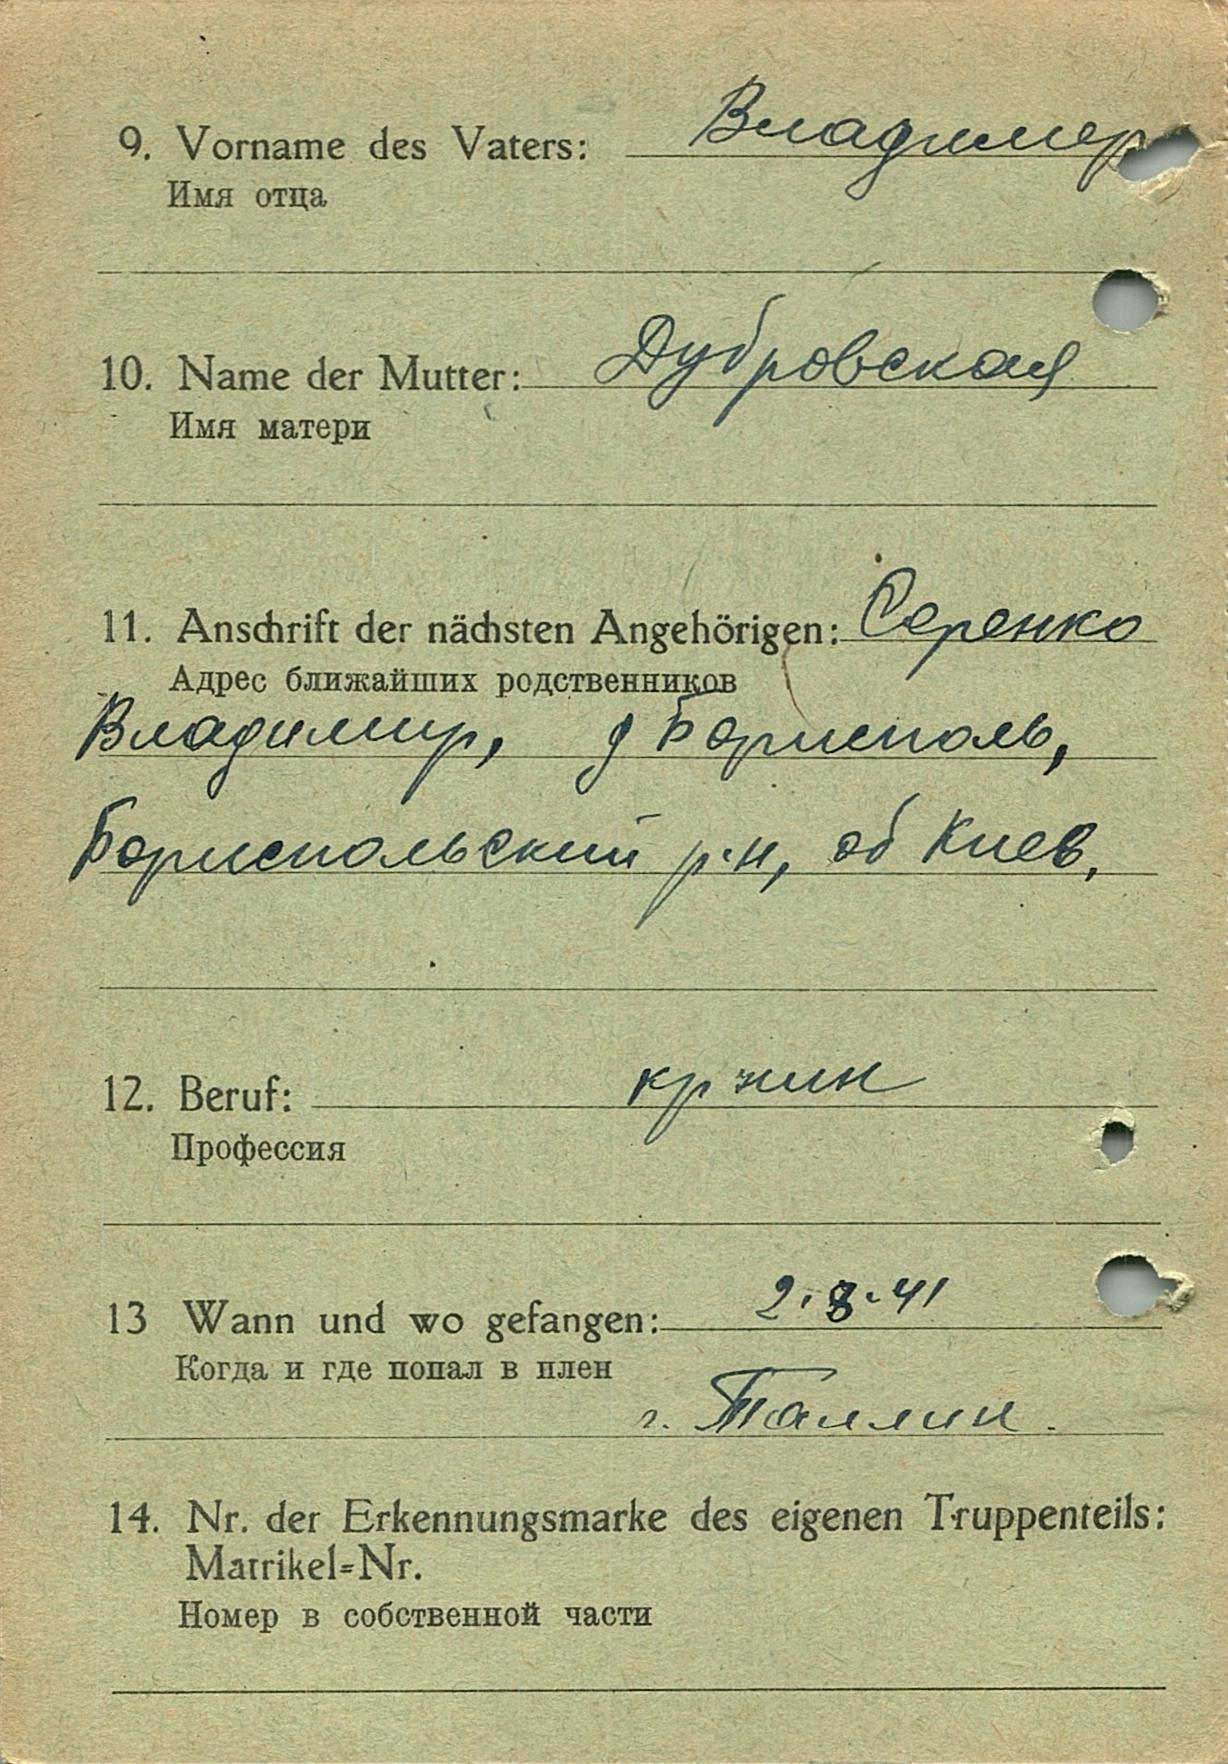 9. Vorname des Vaters: Владимер
Имя отца
10. Name der Mutter: Дубровская
Имя матери
11. Anschrift der nächsten Angehörigen: Серенко
Адрес ближайших родственников
Владимир, д Борисполь,
Бориспольский р-н, об Киев,
12. Beruf:
Профессия
13 Wann und wo gefangen: 2.8.41
Когда и где попал в плен
г. Таллин.
14. Nr. der Erkennungsmarke des eigenen Truppenteils:
Matrikel=Nr.
Номер в собственной части